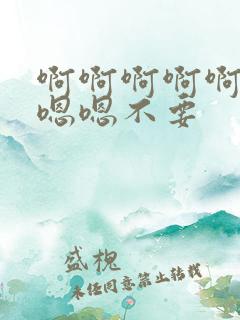 啊啊啊啊啊
嗯嗯不要
盛槐
未经同意禁止转载